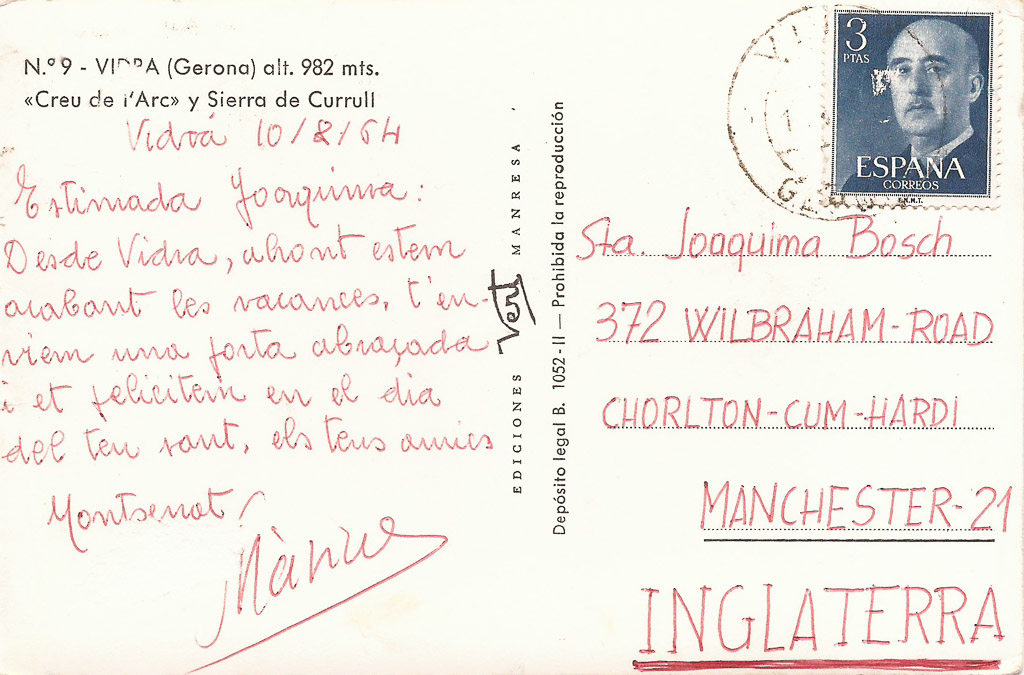 N.º 9 - VIDRA (Gerona) alt. 982 mts.
«Creu de l'Arc» y Sierra de Currull
Vidrá 10/8/64
Estimada Joaquima:
Desde Vidra, ahont estem
acabant les vacances, t'en-
viem una forta abraçada
i et felicitem en el dia
del teu sant, els teus amics
Montserrat
EDICIONES Vert MANRESA
Depósito legal B. 1052-II — Prohibida la reproducción
3
PTAS
ESPAÑA
CORREOS
F.N.M.T.
Sta. Joaquima Bosch
372 WILBRAHAM-ROAD
CHORLTON-CUM-HARDI
MANCHESTER-21
INGLATERRA